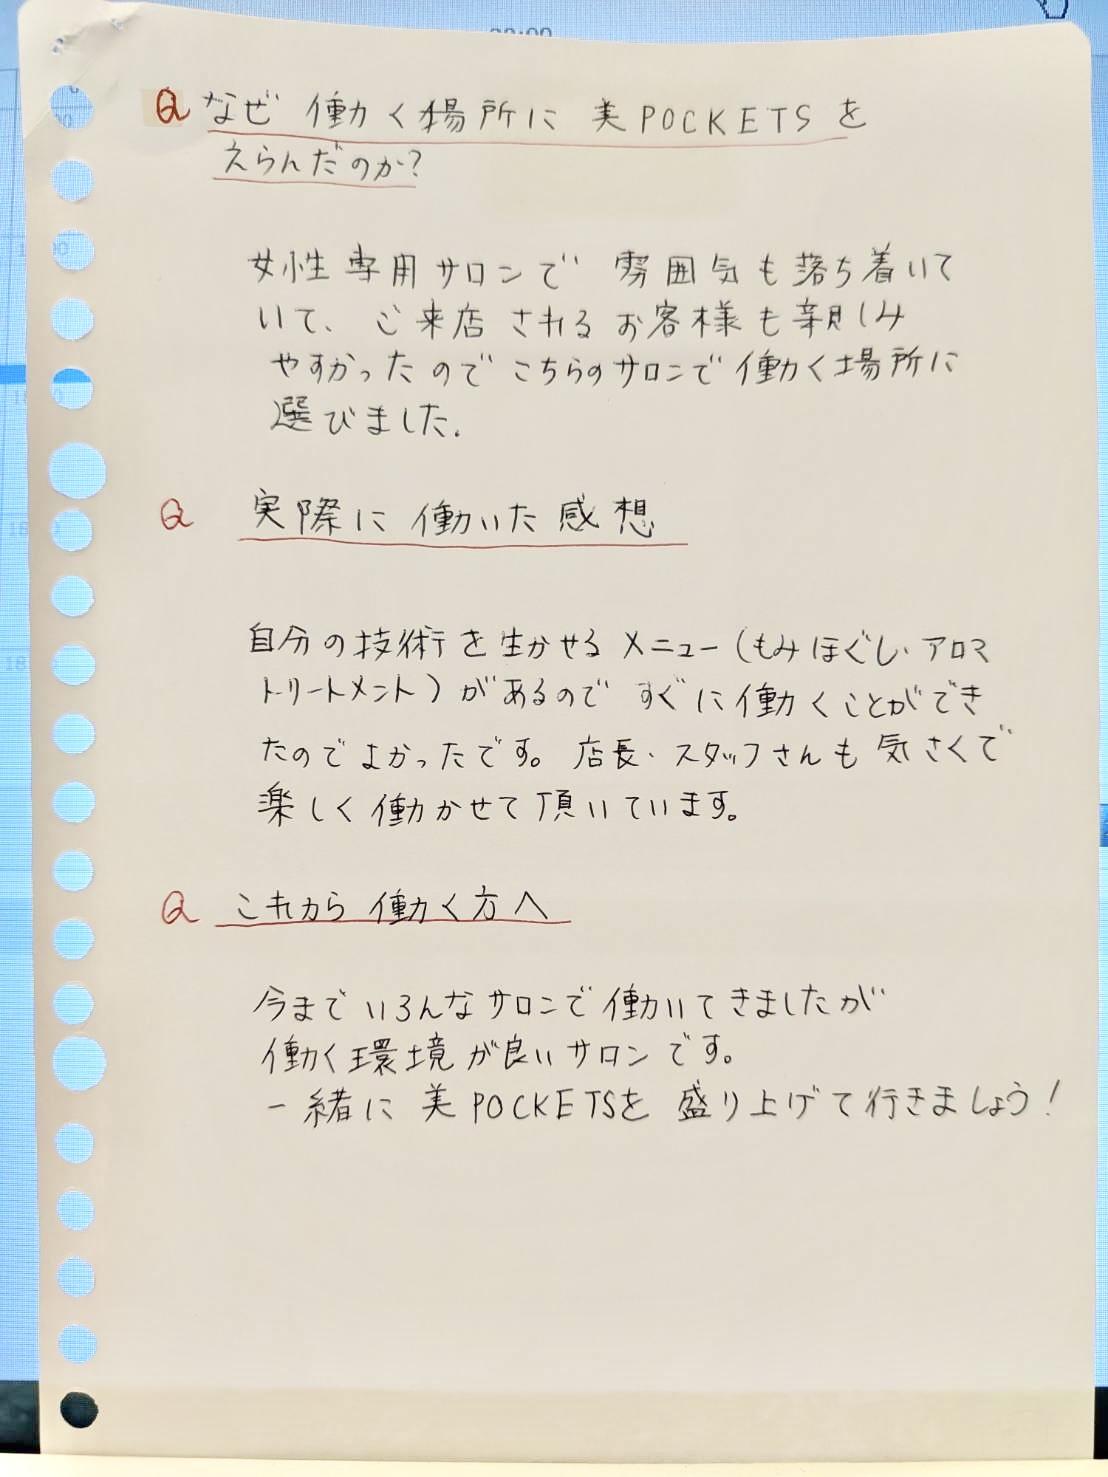 Q なぜ 働く場所に 美POCKETSを
えらんだのか?
女性専用サロンで 雰囲気も落ち着いて
いて、ご来店されるお客様も親しみ
やすかったのでこちらのサロンで働く場所に
選びました.
Q 実際に働いた感想
自分の技術を生かせるメニュー(もみほぐし・アロマ
トリートメント)があるのですぐに働くことができ
たのでよかったです。店長・スタッフさんも気さくで
楽しく働かせて頂いています。
Q これから働く方へ
今までいろんなサロンで働いてきましたが
働く環境が良いサロンです。
一緒に美POCKETSを盛り上げて行きましょう!